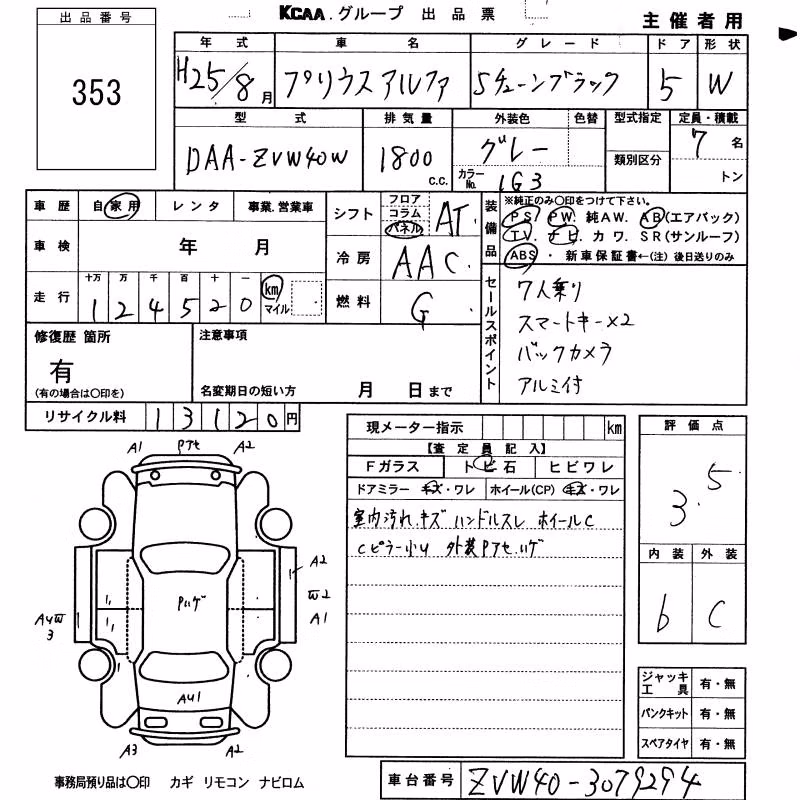 KCAA.グループ 出品票 主催者用
出品番号
353
年式 車名 グレード ドア 形状
H25/8月 プリウスアルファ Sチューンブラック 5 W
型式 排気量 外装色 色替 型式指定 定員・積載
DAA-ZVW40W 1800 c.c. グレー カラーNo. 1G3 類別区分 7名 トン
車歴 自家用 レンタ 事業.営業車
車検 年 月
走行 十万 万 千 百 十 一
1 2 4 5 2 0 km マイル
シフト フロア コラム パネル AT
冷房 AAC
燃料 G
装備品 ※純正のみ〇印をつけて下さい。
PS. PW. 純AW. AB(エアバック)
TV. ナビ. カワ. SR(サンルーフ)
ABS ・ 新車保証書←(注) 後日送りのみ
セールスポイント
7人乗り
スマートキー×2
バックカメラ
アルミ付
修復歴 箇所
有
(有の場合は〇印を)
注意事項
名変期日の短い方 月 日まで
リサイクル料 13120円
現メーター指示 km
【査定員記入】
Fガラス トビ石 ヒビワレ
ドアミラー キズ・ワレ ホイール(CP) キズ・ワレ
室内汚れ.キズ ハンドルスレ ホイールC
Cピラー小U 外装Pアセ.ハゲ
評価点
3.5
内装 外装
b C
ジャッキ工具 有・無
パンクキット 有・無
スペアタイヤ 有・無
A1 Pアセ A2
A2
W2
A1
AUW3
Pハゲ
AU1
A3 A2
事務局預り品は〇印 カギ リモコン ナビロム
車台番号 ZVW40-3079294